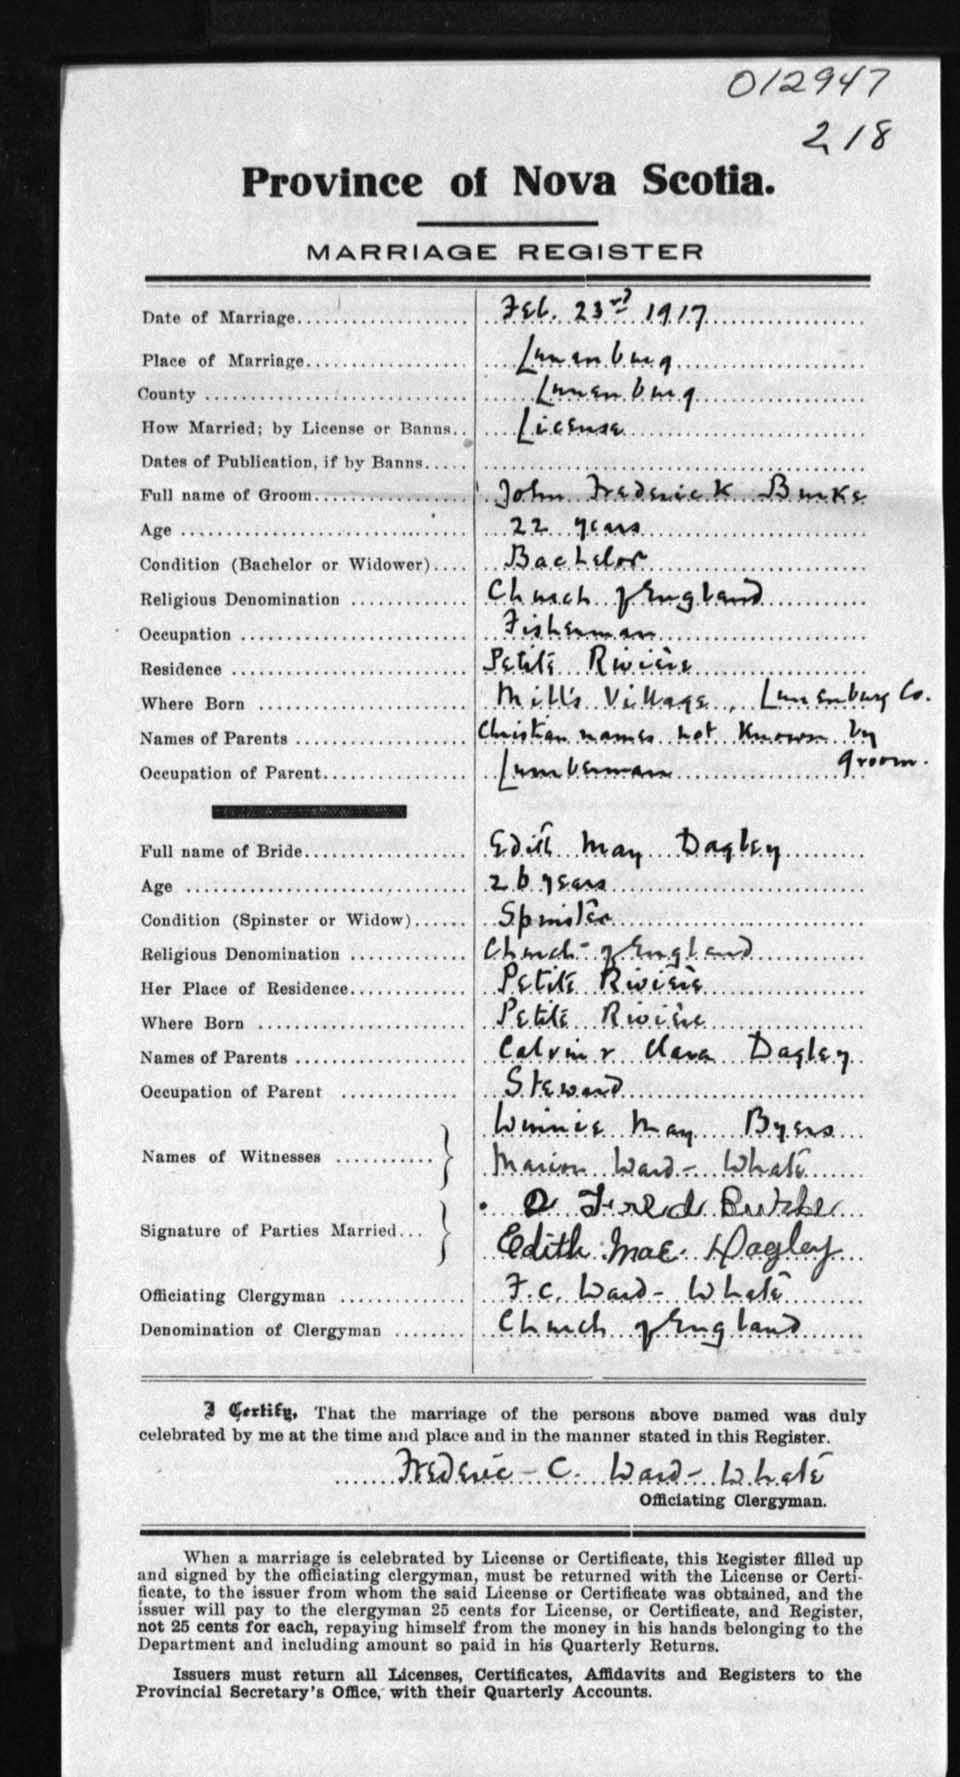 012947
218
Province of Nova Scotia.
MARRIAGE REGISTER
Date of Marriage.................. Feb. 23rd 1917
Place of Marriage.................. Lunenburg
County .................. Lunenburg
How Married; by License or Banns.. License
Dates of Publication, if by Banns.....
Full name of Groom.................. John Frederick Burke
Age .................. 22 years
Condition (Bachelor or Widower).... Bachelor
Religious Denomination ............ Church of England
Occupation .................. Fisherman
Residence .................. Petite Rivière
Where Born .................. Mill's Village, Lunenburg Co.
Names of Parents .................. Christian names not known by
groom.
Occupation of Parent.................. Lumberman
Full name of Bride.................. Edith May Dagley
Age .................. 26 years
Condition (Spinster or Widow)...... Spinster
Religious Denomination ............ Church of England
Her Place of Residence............. Petite Rivière
Where Born .................. Petite Rivière
Names of Parents .................. Calvin & Clara Dagley
Occupation of Parent ............. Steward
Names of Witnesses ........... Winnie May Byers
Marion Ward-Whate
Signature of Parties Married... Fred Burke
Edith Mae Dagley
Officiating Clergyman .............. F. C. Ward-Whate
Denomination of Clergyman ........ Church of England
I Certify, That the marriage of the persons above named was duly
celebrated by me at the time and place and in the manner stated in this Register.
Frederic C. Ward-Whate
Officiating Clergyman.
When a marriage is celebrated by License or Certificate, this Register filled up
and signed by the officiating clergyman, must be returned with the License or Certi-
ficate, to the issuer from whom the said License or Certificate was obtained, and the
issuer will pay to the clergyman 25 cents for License, or Certificate, and Register,
not 25 cents for each, repaying himself from the money in his hands belonging to the
Department and including amount so paid in his Quarterly Returns.
Issuers must return all Licenses, Certificates, Affidavits and Registers to the
Provincial Secretary's Office, with their Quarterly Accounts.